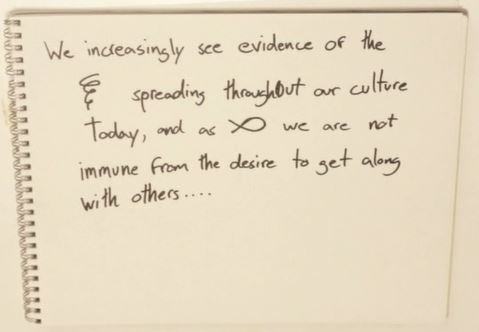 We increasingly see evidence of the
spreading throughout our culture
today, and as we are not
immune from the desire to get along
with others....